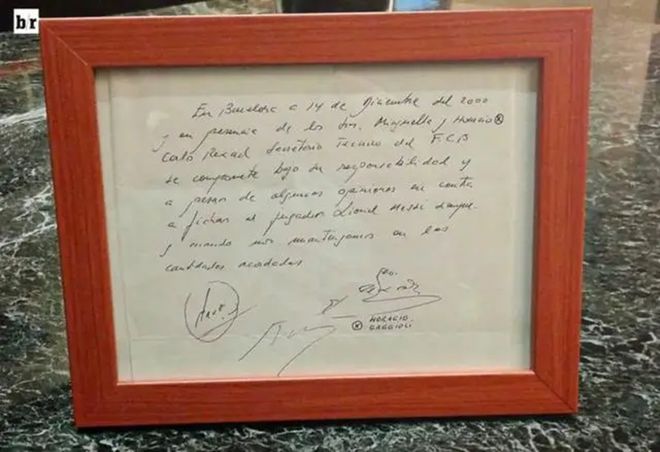 br
En Barcelona a 14 de Diciembre del 2000
y en presencia de los Srs. Minguella y Horacio ⊗
Carlos Rexach Secretario Tecnico del F.C.B
se compromete bajo su responsabilidad y
a pesar de algunas opiniones en contra
a fichar al jugador Lionel Messi siempre
y cuando nos mantengamos en las
cantidades acordadas
⊗ HORACIO
GAGGIOLI